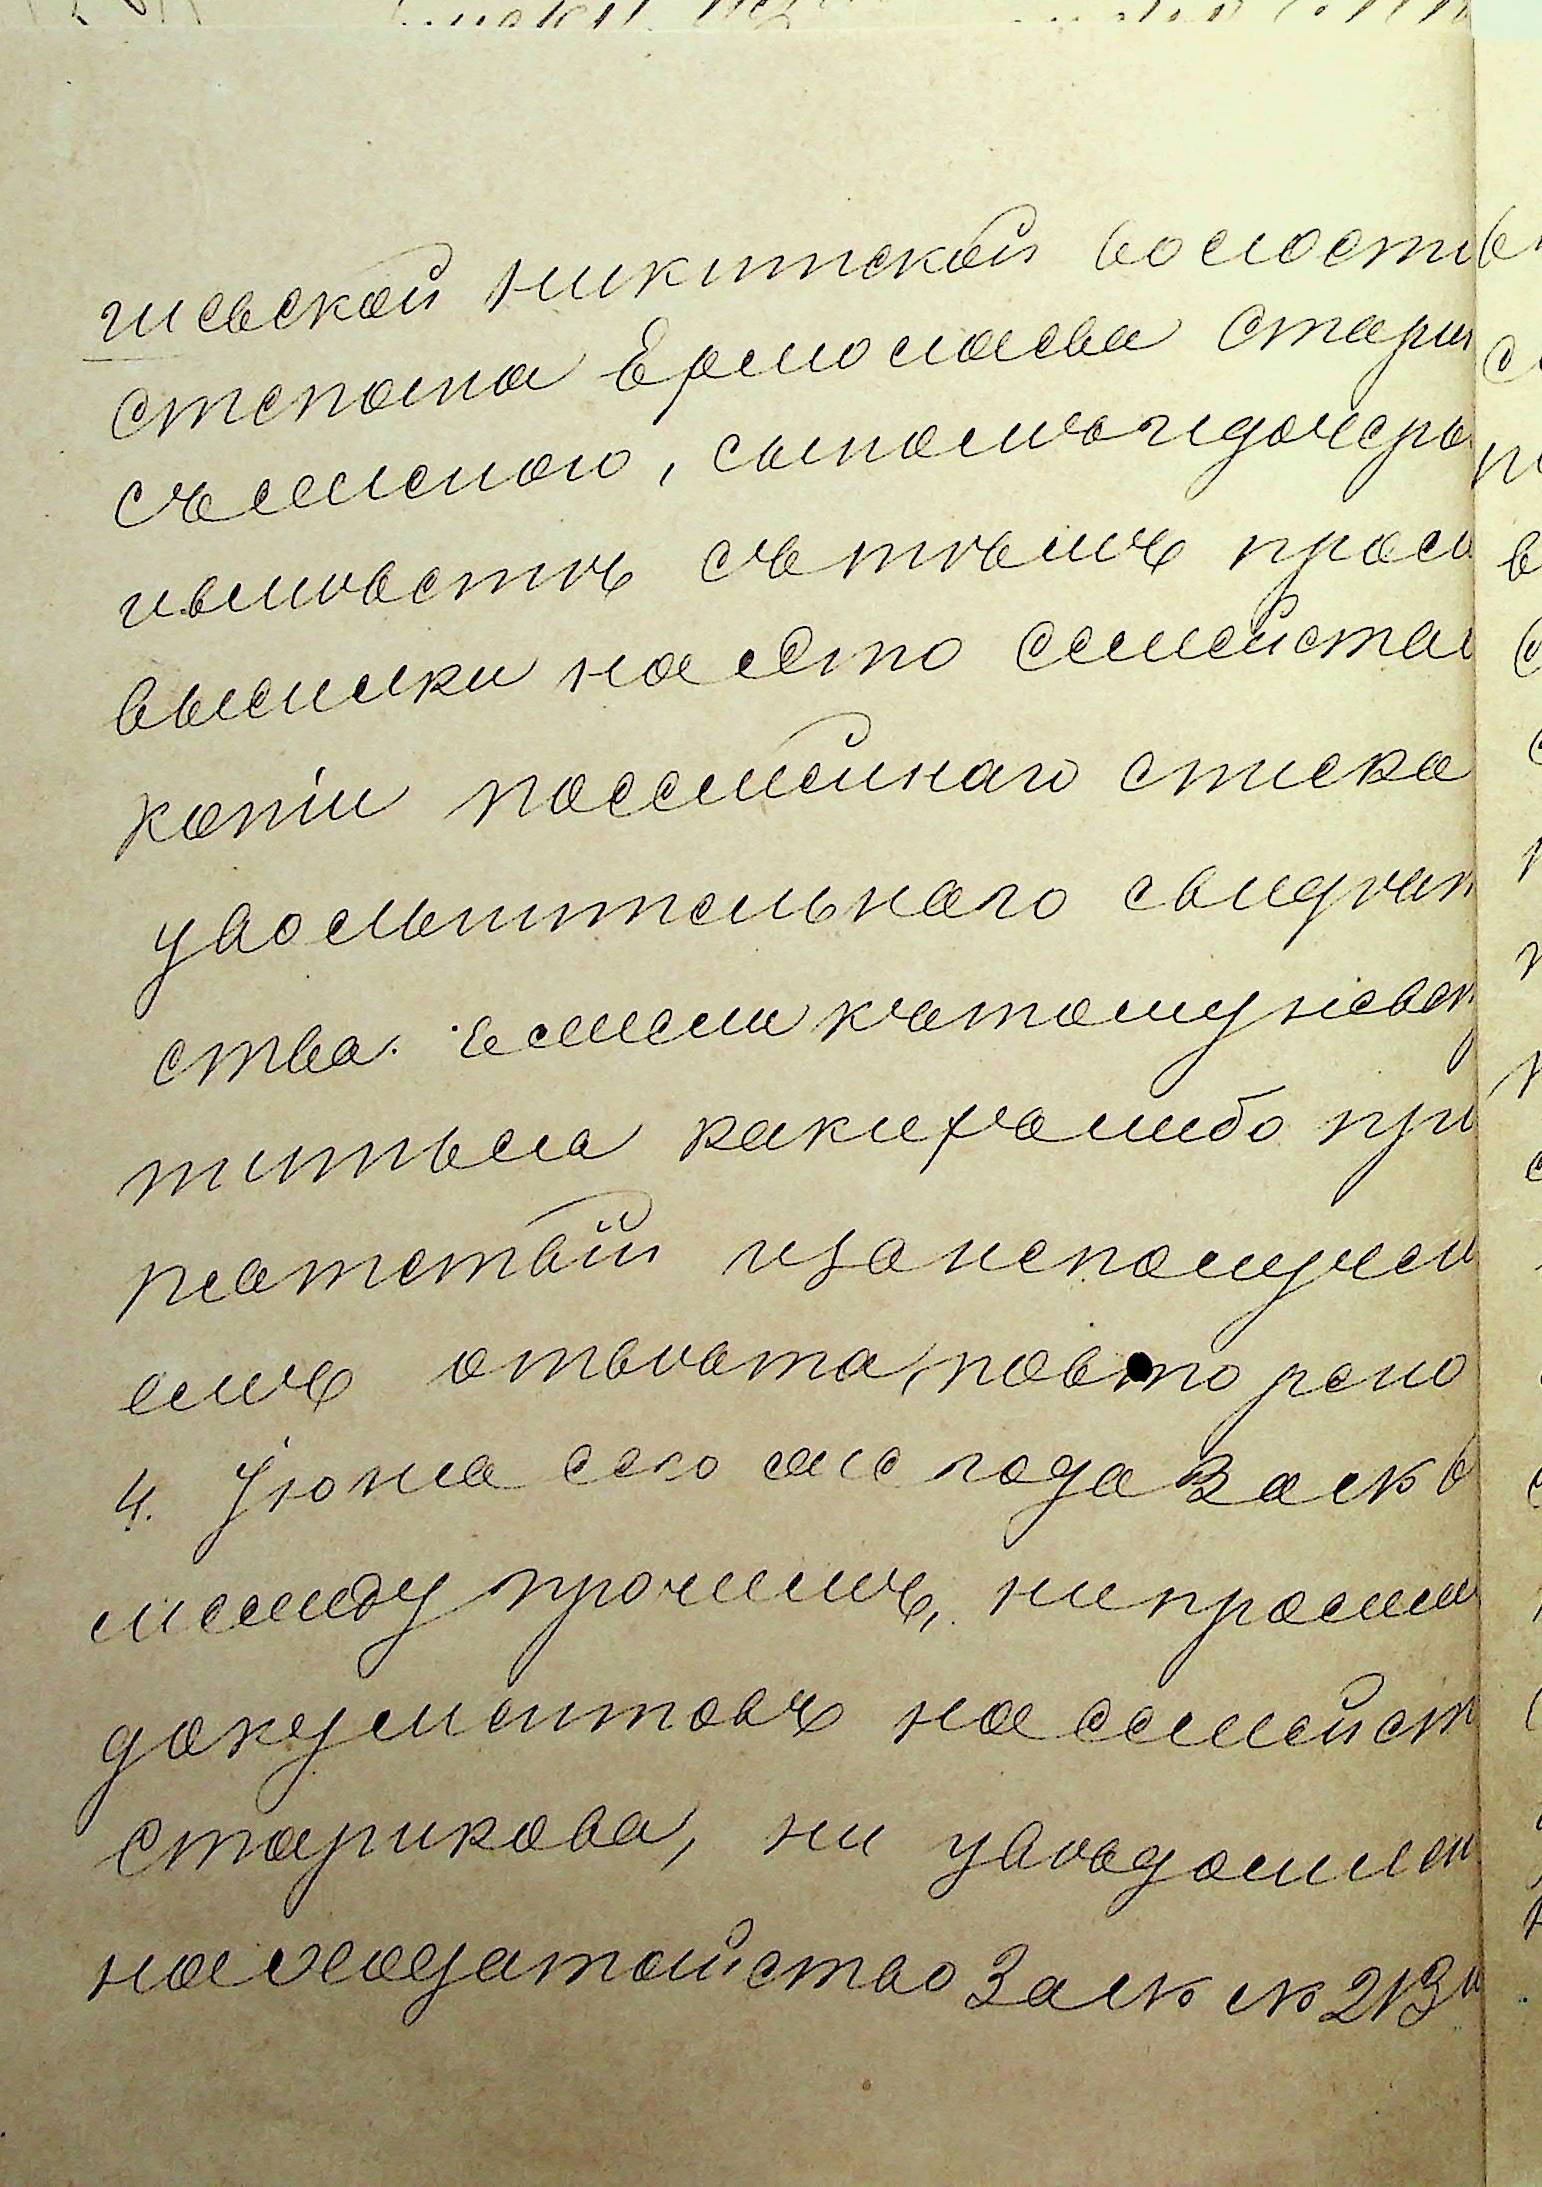 гиевской Никитской волости
Степана Ермолаева Стари
съ женою, сыномъ и дочерью
имъ вместѣ съ тѣмъ проси
высылки на это семейство
копіи посемейнаго списка
увольнительнаго свидѣт
ства. Если къ тому не встр
тится какихъ либо пре
пятствій и за неполучені
емъ отвѣта, повторено
4. Іюня сего же года за №
между прочимъ, ни просим
документовъ на семейст
Старикова, ни увѣдомлен
на ходатайство за № № 213